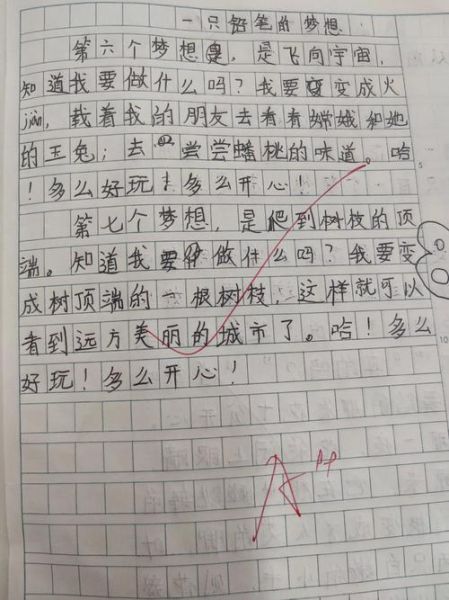 一只铅笔的梦想
第六个梦想，是飞向宇宙，
知道我要做什么吗？我要变成火
，载着我的朋友去看看嫦娥和她
的玉兔；去尝尝蟠桃的味道。哈
！多么好玩！多么开心！
第七个梦想，是爬到树枝的顶
端。知道我要做什么吗？我要变
成树顶端的一根树枝，这样就可以
看到远方美丽的城市了。哈！多么
好玩！多么开心！
A++